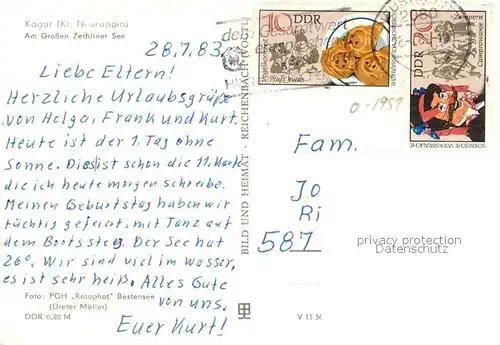 Kagar (Kr. Neuruppin)
Am Großen Zechliner See
28.7.83
Liebe Eltern!
Herzliche Urlaubsgrüße
von Helga, Frank und Kurt.
Heute ist der 1. Tag ohne
Sonne. Dies ist schon die 11. Karte
die ich heute morgen schreibe.
Meinen Geburtstag haben wir
tüchtig gefeiert, mit Tanz auf
dem Bootssteg. Der See hat
26°. Wir sind viel im Wasser,
es ist sehr heiß. Alles Gute
von uns.
Euer Kurt!
Foto: PGH „Rotophot" Bestensee
(Dieter Möller)
DDR 0,20 M
BILD UND HEIMAT · REICHENBACH
10 DDR
20 DDR
SORBISCHE VOLKSBRÄUCHE
0-1959
Fam.
JO
Ri
587
V 11 50
privacy protection